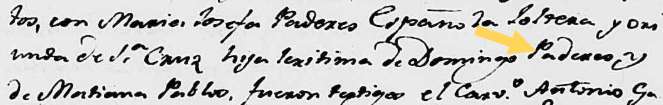 tos, con Maria Josefa Paderes Española soltera y ori
unda de S.ta Cruz hija lexitima de Domingo Paderes, y
de Matiana Pablo, fueron testigos el Cavo. Antonio Ga